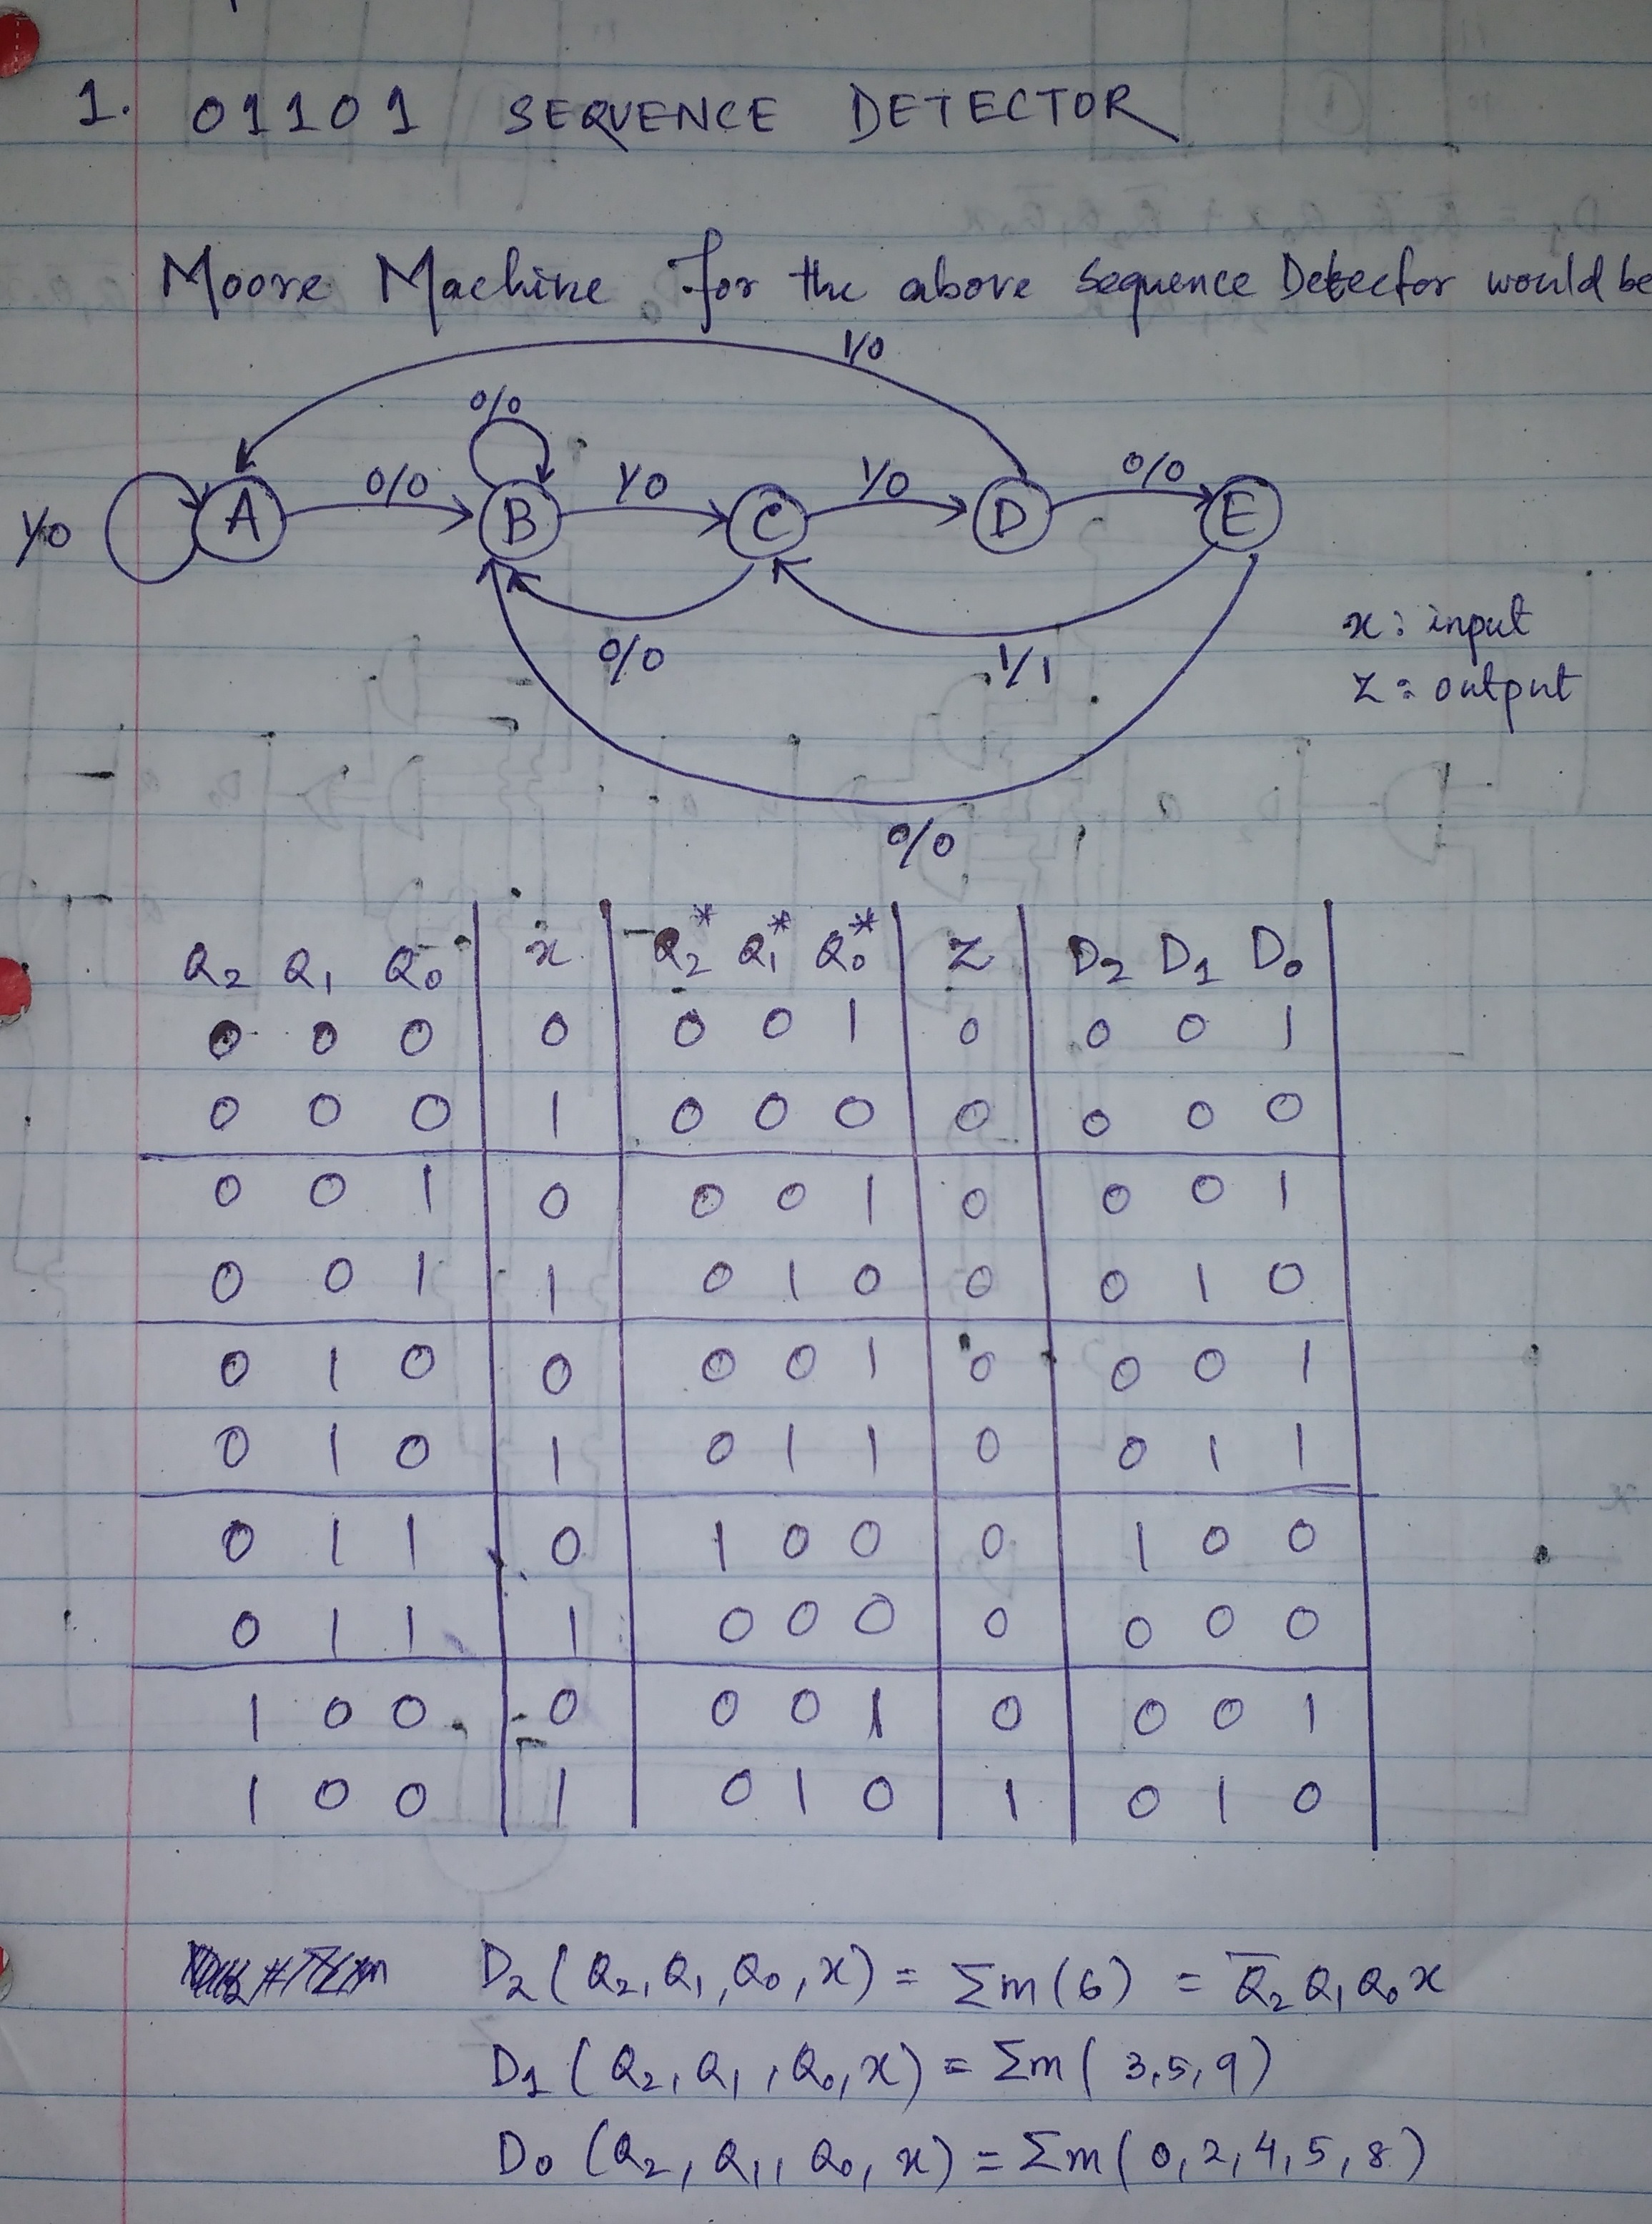 1. 01101 SEQUENCE DETECTOR
Moore Machine for the above sequence Detector would be
1/0
0/0
1/0 A 0/0 B 1/0 C 1/0 D 0/0 E
0/0 1/1
x: input
z: output
0/0
Q₂ Q₁ Q₀ x Q₂* Q₁* Q₀* Z D₂ D₁ D₀
0 0 0 0 0 0 1 0 0 0 1
0 0 0 1 0 0 0 0 0 0 0
0 0 1 0 0 0 1 0 0 0 1
0 0 1 1 0 1 0 0 0 1 0
0 1 0 0 0 0 1 0 0 0 1
0 1 0 1 0 1 1 0 0 1 1
0 1 1 0 1 0 0 0 1 0 0
0 1 1 1 0 0 0 0 0 0 0
1 0 0 0 0 0 1 0 0 0 1
1 0 0 1 0 1 0 1 0 1 0
D₂ (Q₂, Q₁, Q₀, x) = Σm(6) = Q̅₂ Q₁ Q₀ x
D₁ (Q₂, Q₁, Q₀, x) = Σm(3,5,9)
D₀ (Q₂, Q₁, Q₀, x) = Σm(0,2,4,5,8)